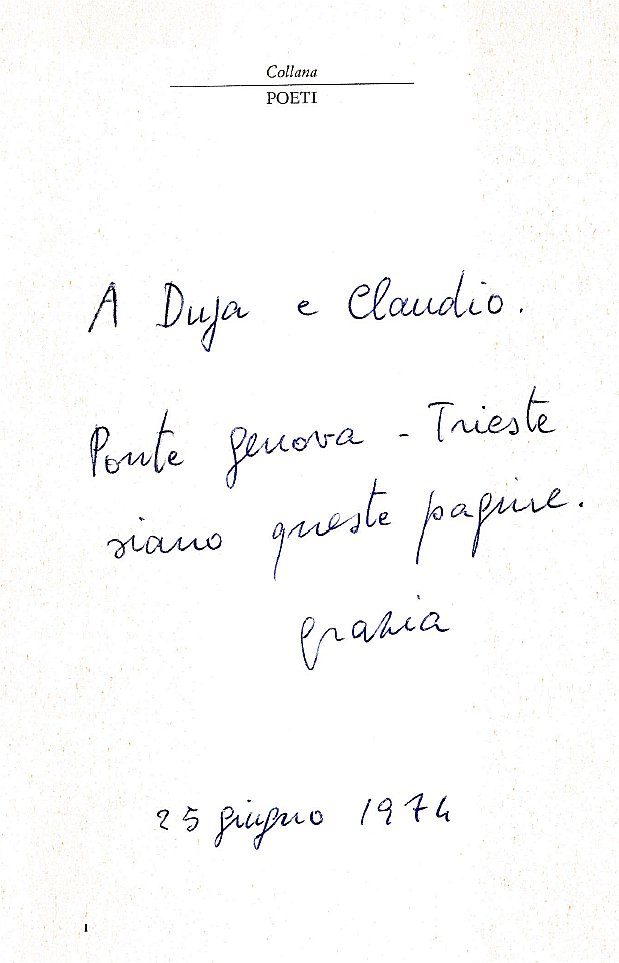 Collana
POETI
A Duja e Claudio.
Ponte Genova - Trieste
siano queste pagine.
Grazia
25 giugno 1974
1